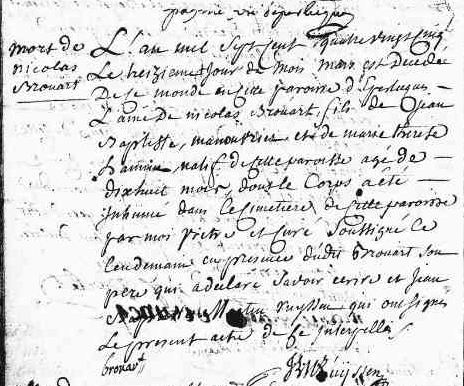 mort de
nicolas
Brouart
L'an mil sept cent quatre vingt cinq
Le treizieme jour du mois mars est decedee
De ce monde en cette paroisse d'Eperlecques
L'ame De nicolas Brouart, fils de jean
Baptiste, manouvrier et de marie therese
natif de cette paroisse agé de
dixhuit mois, dont le Corps a été
Inhumé dans le Cimetiere de cette paroisse
par moi Prêtre et Curé Soussigné le
lendemain en presence dudit Brouart son
pere qui a declaré Savoir ecrire et Jean
qui ont signé
Le present acte de ce Interpellés
brouart